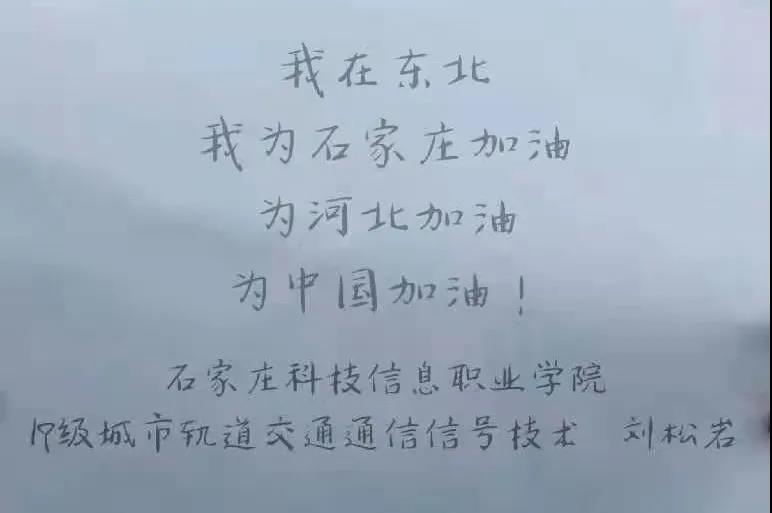 我在东北
我为石家庄加油
为河北加油
为中国加油！
石家庄科技信息职业学院
19级城市轨道交通通信信号技术 刘松岩